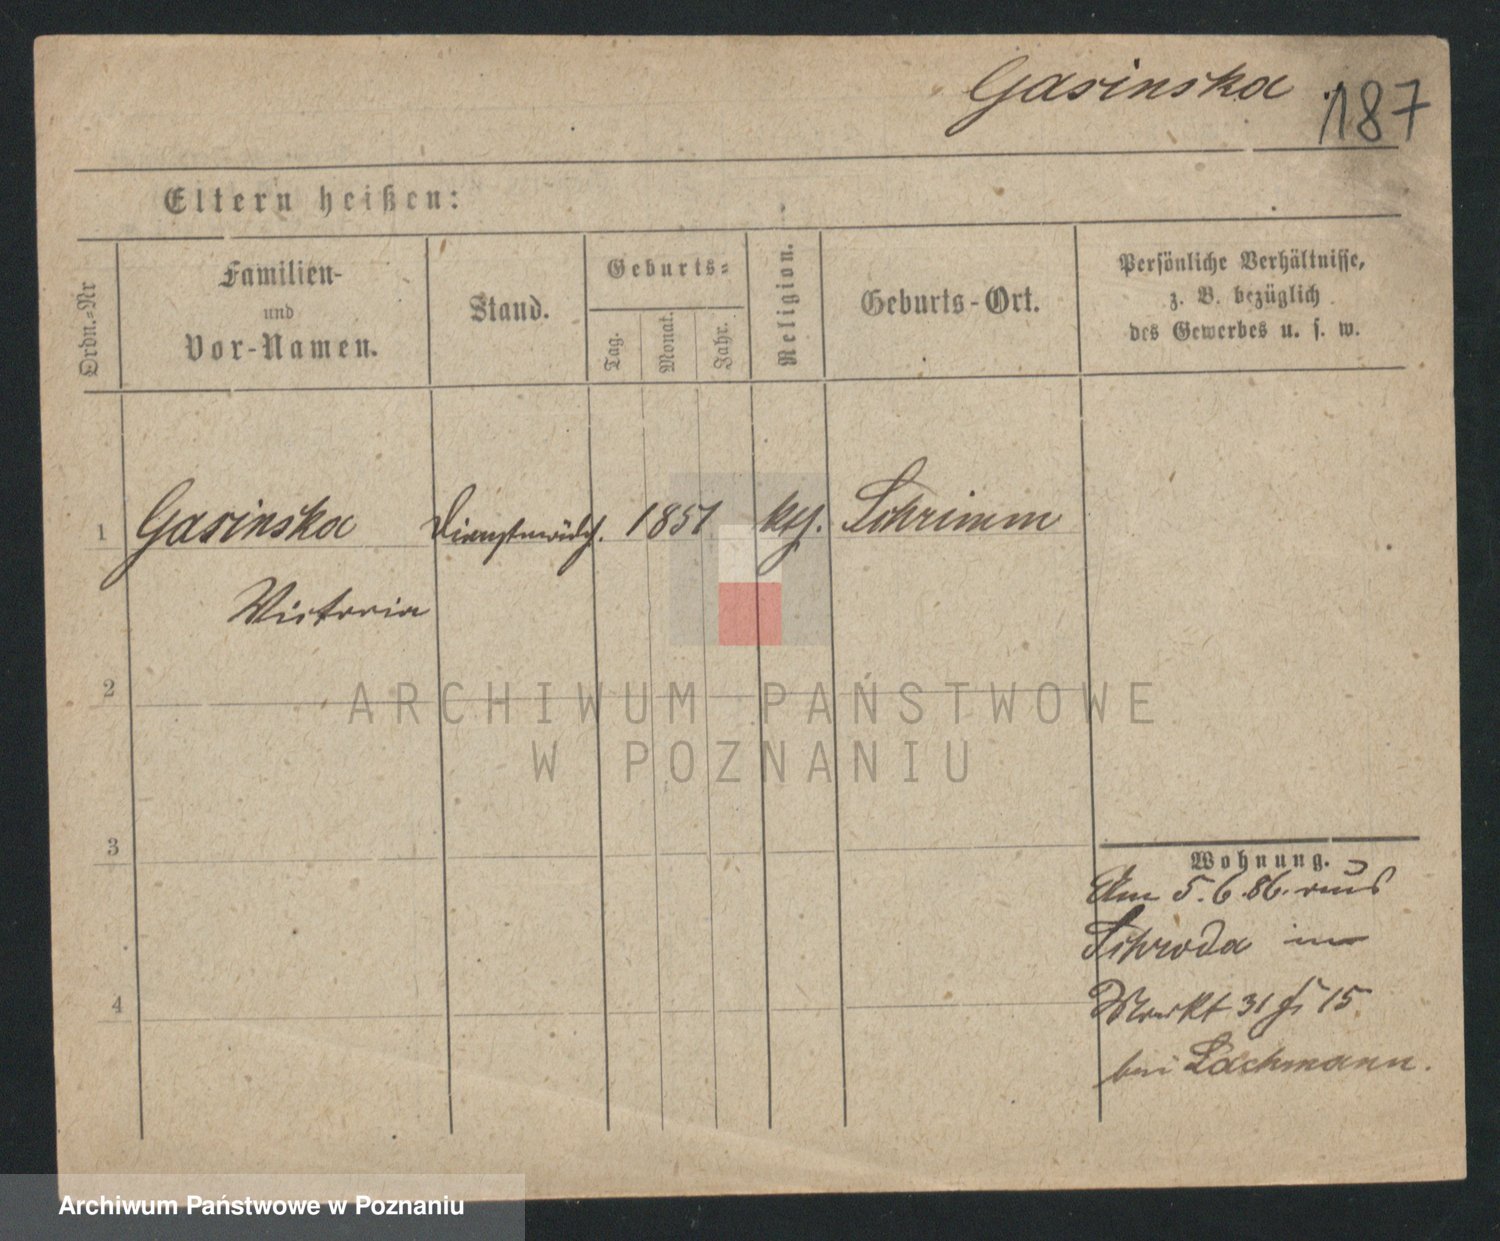 Gasinska 187
Eltern heißen:
Ordn.-Nr
Familien-
und
Vor-Namen.
Stand.
Geburts-
Tag.
Monat.
Jahr.
Religion.
Geburts-Ort.
Persönliche Verhältnisse,
z. B. bezüglich
des Gewerbes u. s. w.
1 Gasinska Dienstmädch. 1851 kth. Schrimm
Victoria
2
3
4
Wohnung.
Am 5.6.86. aus
Schroda in
Markt 31 15
bei Lachmann.
ARCHIWUM PAŃSTWOWE
W POZNANIU
Archiwum Państwowe w Poznaniu